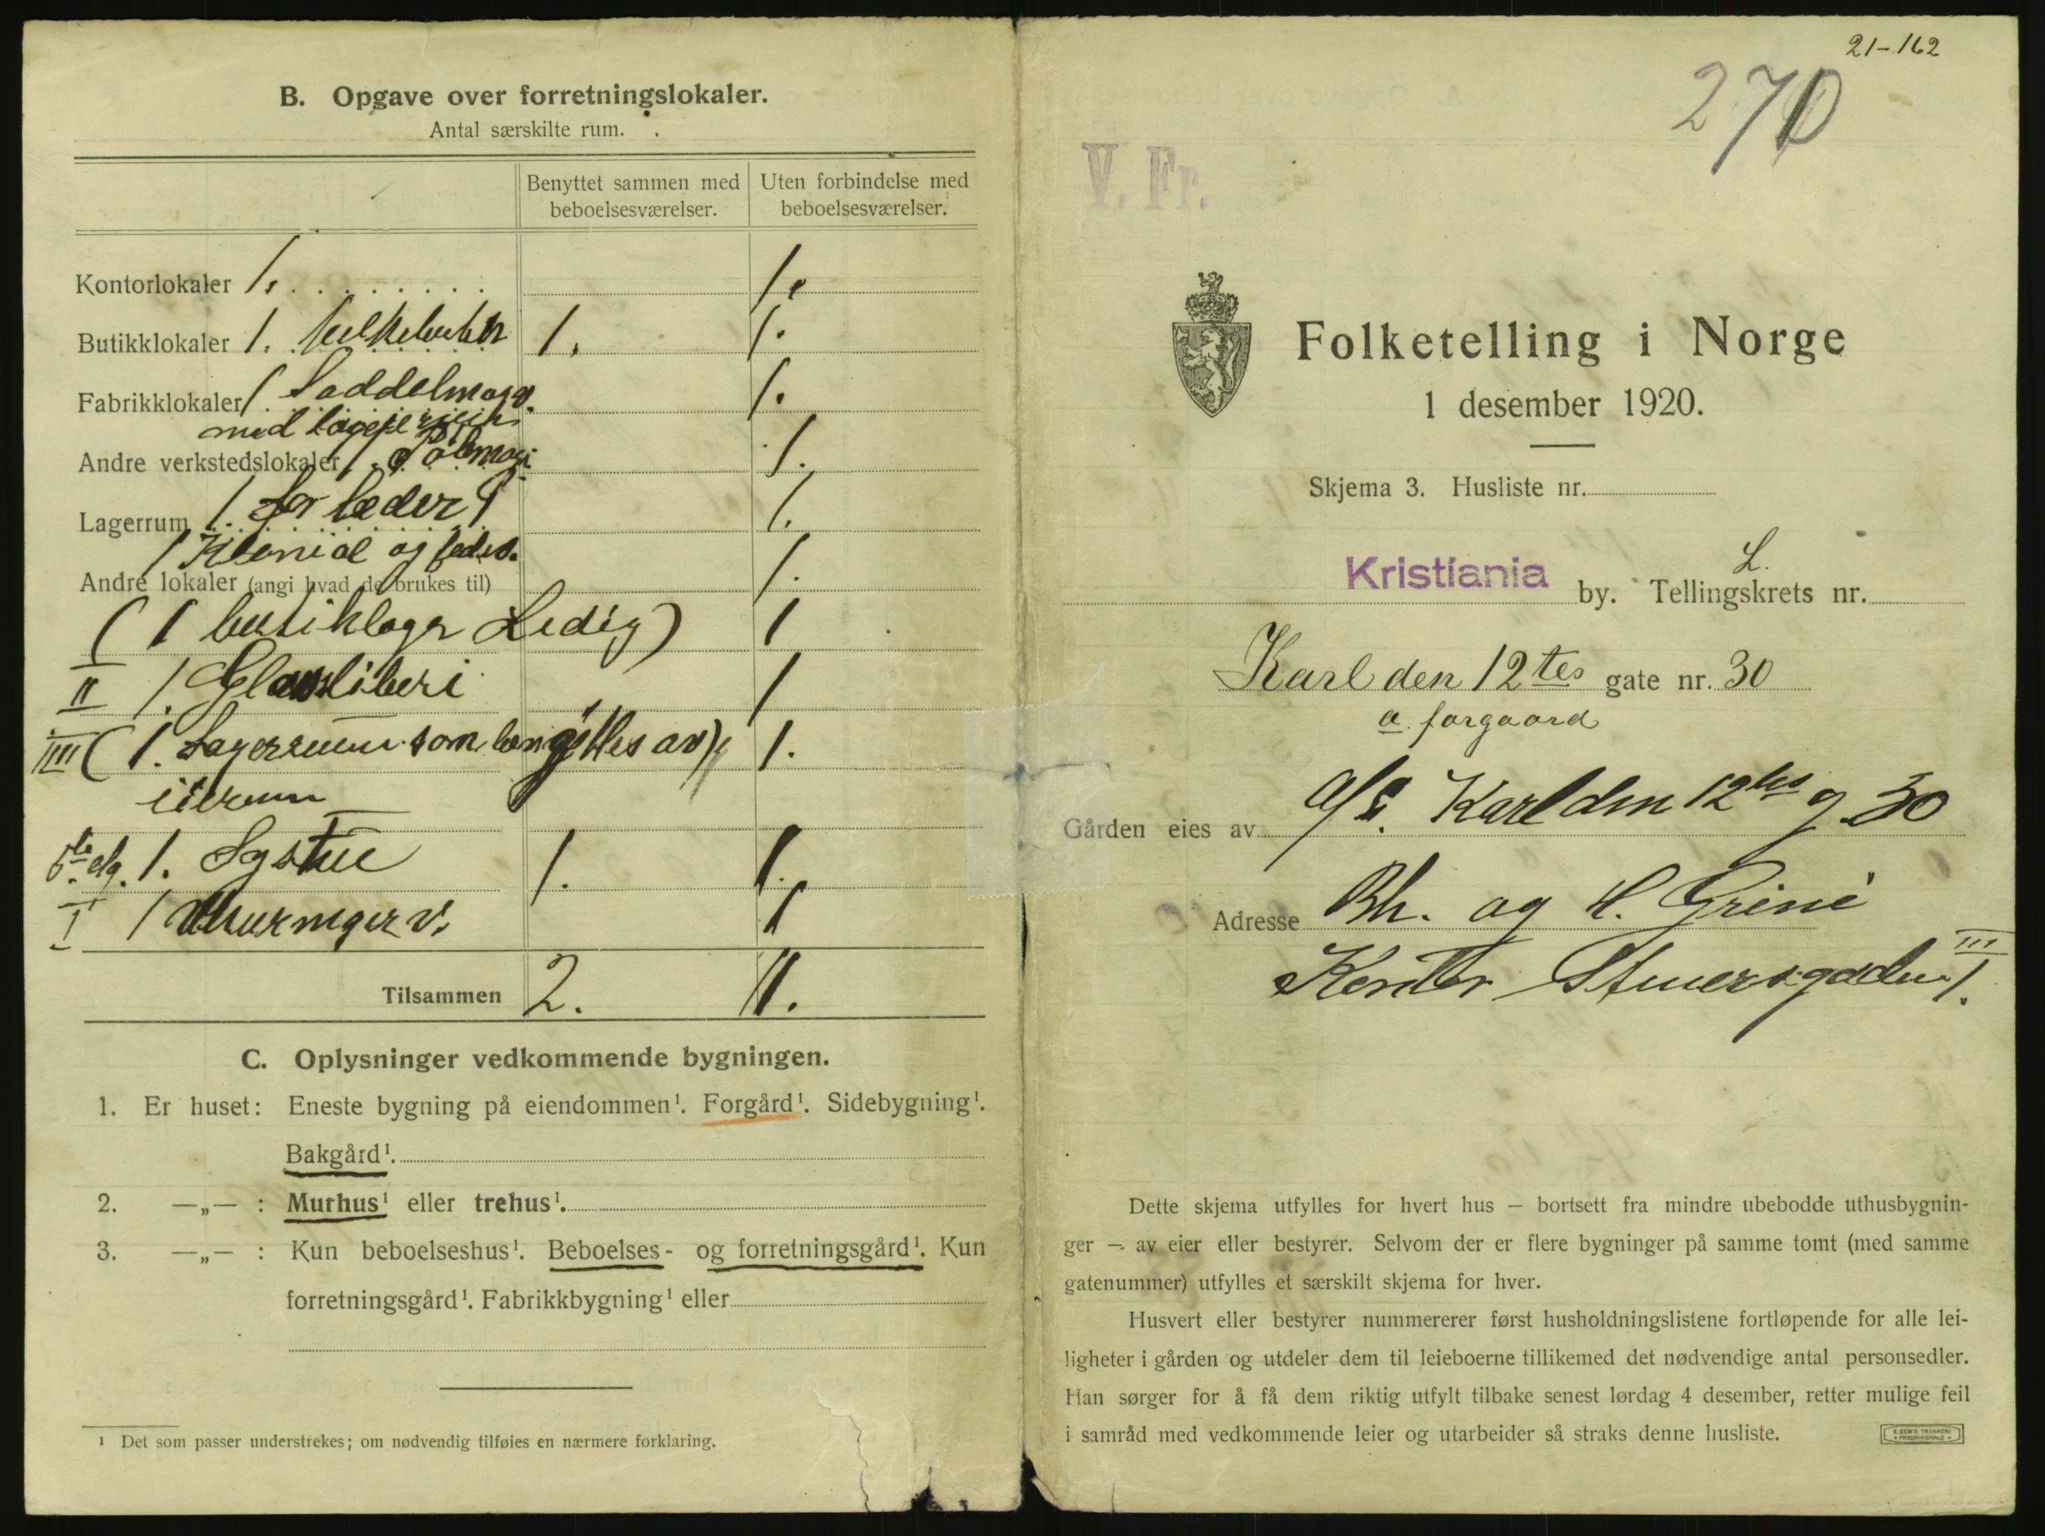 B. Opgave over forretningslokaler.
Antal særskilte rum.
Benyttet sammen med beboelsesværelser.
Uten forbindelse med beboelsesværelser.
Kontorlokaler 1. 1.
Butikklokaler 1. 1. 1.
Fabrikklokaler 1 Saddelmagv. 1.
med lager
Andre verkstedslokaler 1 1.
Lagerrum 1 for læder 1.
1 Kolonial og
Andre lokaler (angi hvad de brukes til) 1.
(1 butiklager Ledig) 1
II 1. Glassliberi 1
III (1. Lagerrum som 1.
1. Systue 1. 1.
I 1 1
Tilsammen 2. 11.
C. Oplysninger vedkommende bygningen.
1. Er huset: Eneste bygning på eiendommen¹. Forgård¹. Sidebygning¹.
Bakgård¹.
2. —„— : Murhus¹ eller trehus¹.
3. —„— : Kun beboelseshus¹. Beboelses- og forretningsgård¹. Kun
forretningsgård¹. Fabrikkbygning¹ eller
¹ Det som passer understrekes; om nødvendig tilføies en nærmere forklaring.
21-162
270
V. Fr.
Folketelling i Norge
1 desember 1920.
Skjema 3. Husliste nr.
Kristiania by. Tellingskrets nr. L.
Karl den 12tes gate nr. 30
a. forgaard
Gården eies av A/S. Karl den 12tes g 30
Adresse Bh. og H. Grini
Kontor Stenersgaden 1. III
Dette skjema utfylles for hvert hus — bortsett fra mindre ubebodde uthusbygnin-
ger — av eier eller bestyrer. Selvom der er flere bygninger på samme tomt (med samme
gatenummer) utfylles et særskilt skjema for hver.
Husvert eller bestyrer nummererer først husholdningslistene fortløpende for alle lei-
ligheter i gården og utdeler dem til leieboerne tillikemed det nødvendige antal personsedler.
Han sørger for å få dem riktig utfylt tilbake senest lørdag 4 desember, retter mulige feil
i samråd med vedkommende leier og utarbeider så straks denne husliste.
E. SEM'S TRYKKERI
FREDRIKSHALD